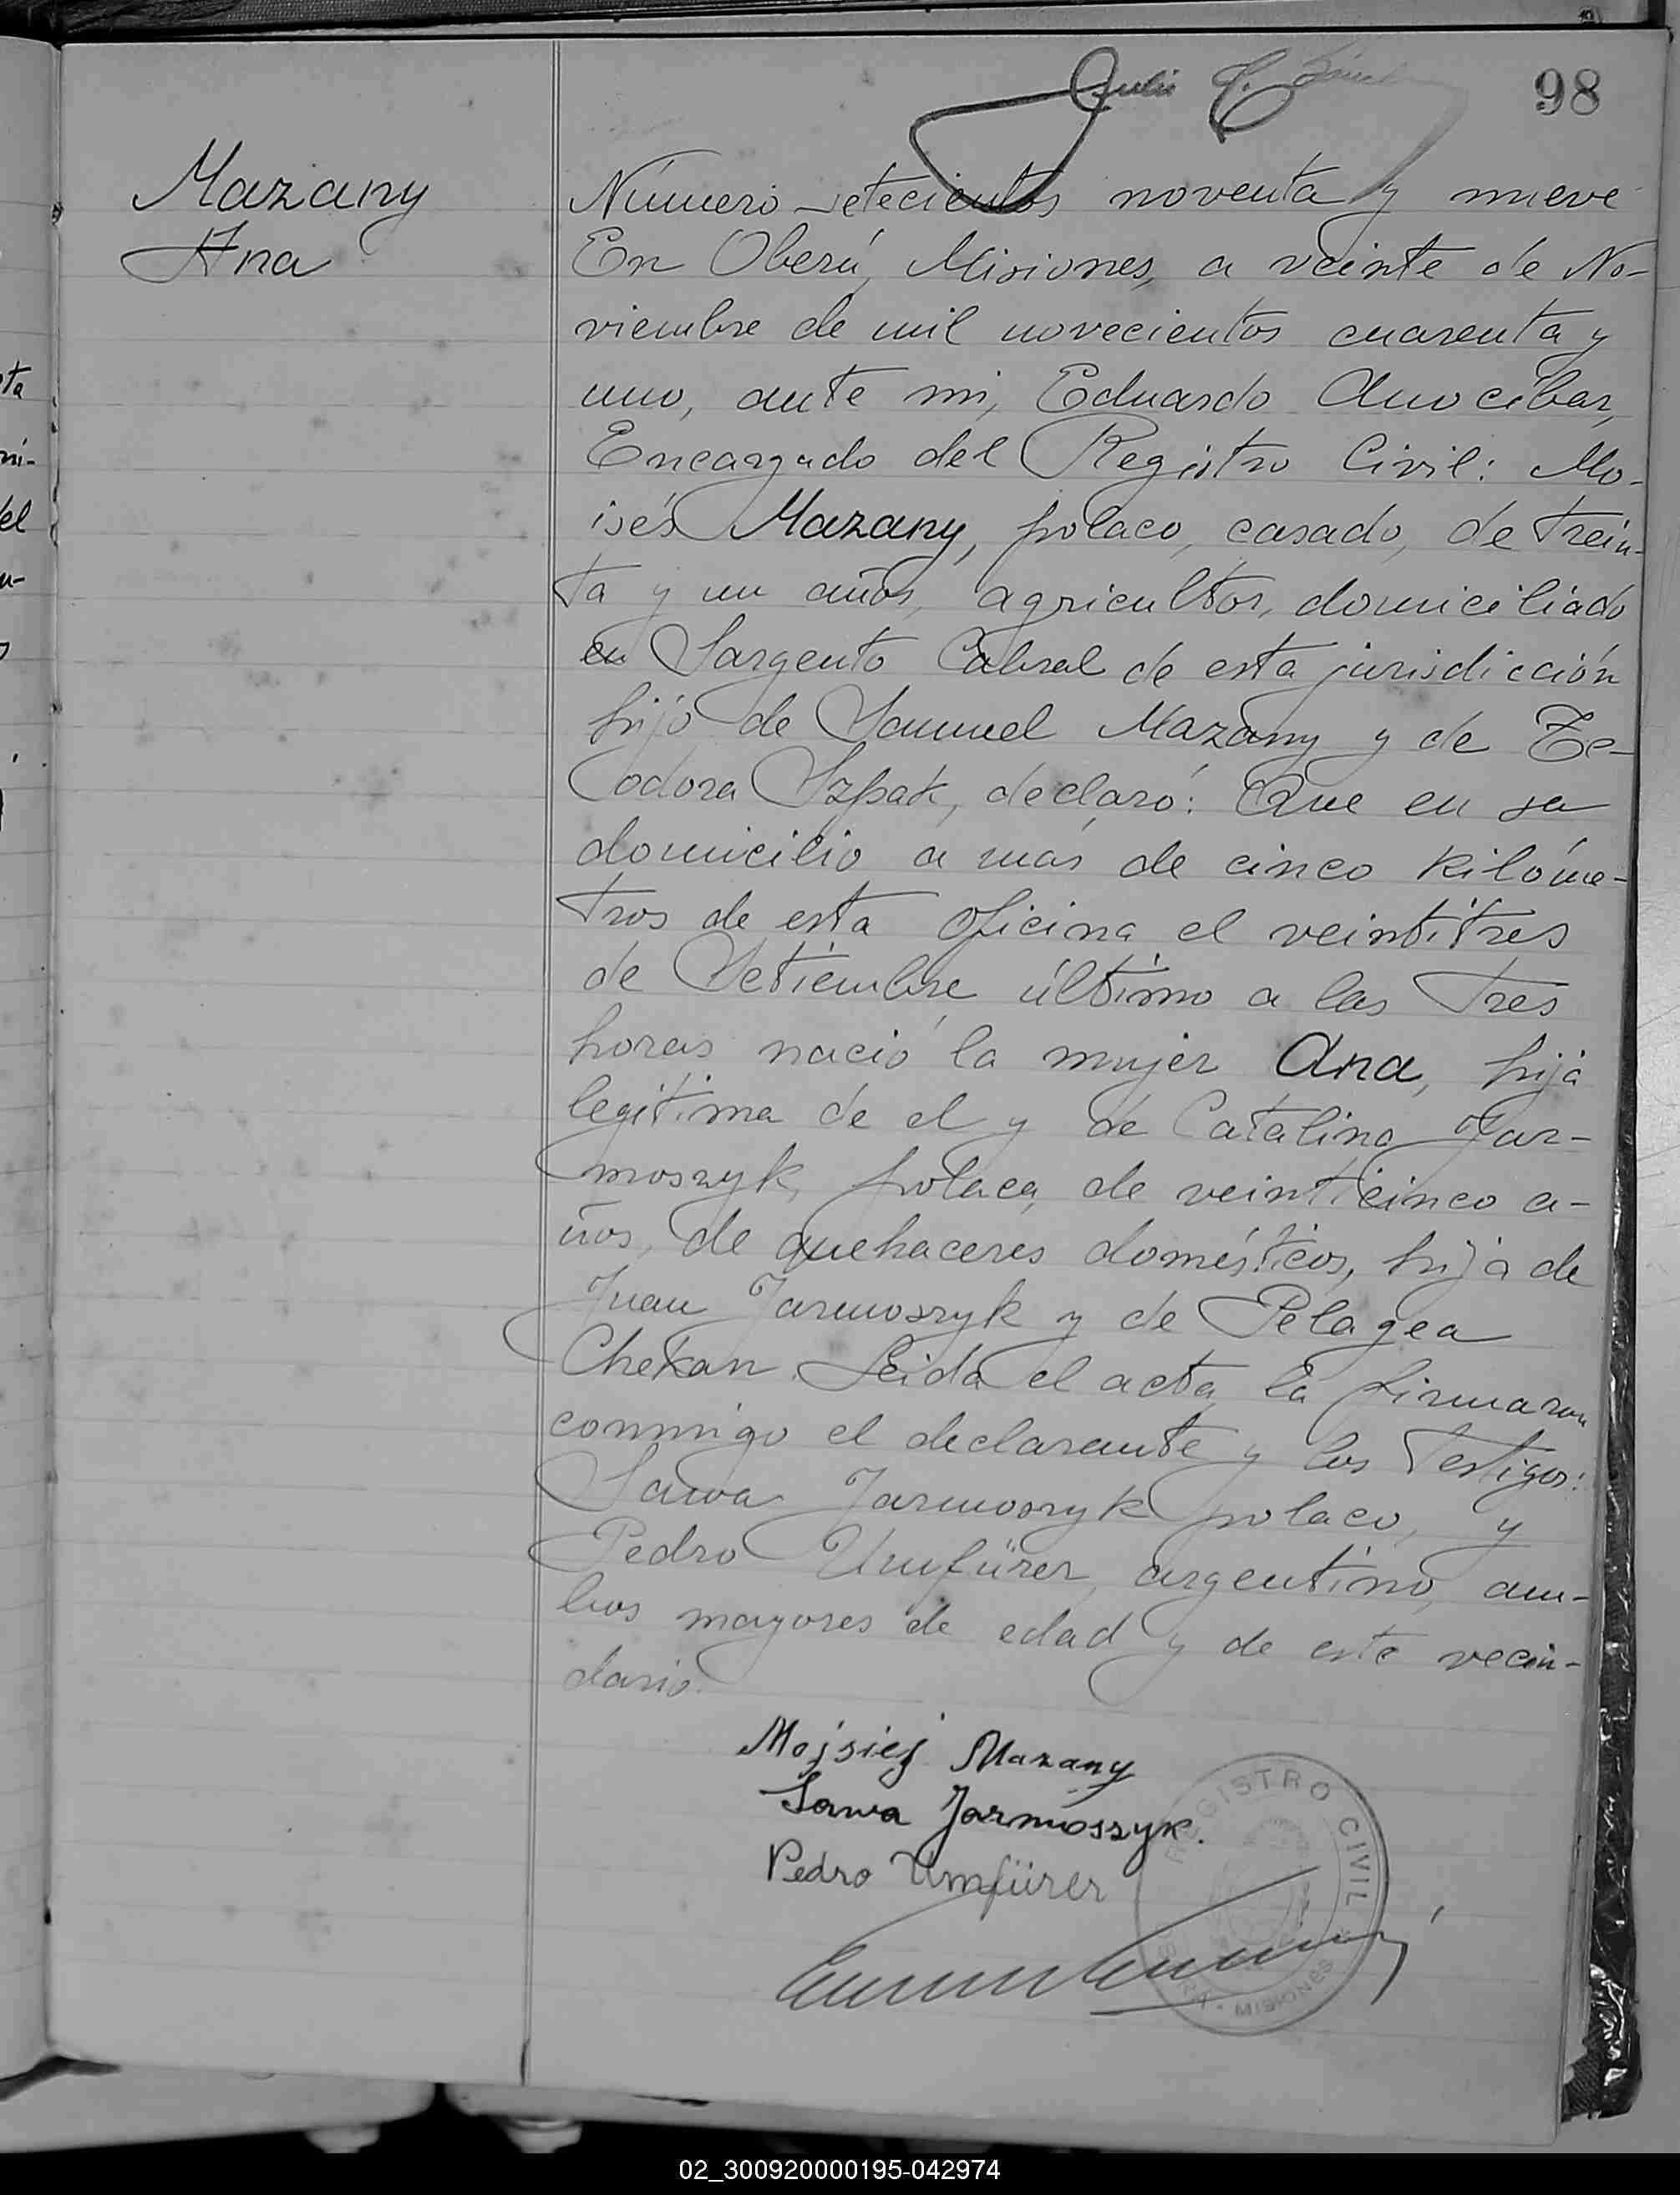 98
Mazany
Ana
Número setecientos noventa y nueve
En Oberá, Misiones, a veinte de No-
viembre de mil novecientos cuarenta y
uno, ante mi, Eduardo Anocibar,
Encargado del Registro Civil: Mo-
isés Mazany, polaco, casado, de trein-
ta y un años, agricultor, domiciliado
en Sargento Cabral de esta jurisdicción
hijo de Samuel Mazany y de Te-
odora Szpak, declaró: Que en su
domicilio a más de cinco kilóme-
tros de esta oficina el veintitres
de Setiembre último a las tres
horas nació la mujer Ana, hija
legítima de el y de Catalina Jar-
moszyk, polaca, de veinticinco a-
ños, de quehaceres domésticos, hija de
Juan Jarmoszyk y de Pelagea
Chekan. Leida el acta, la firmaron
conmigo el declarante y los testigos:
Sawa Jarmoszyk polaco, y
Pedro Umfürer, argentino, am-
bos mayores de edad y de este vecin-
dario.
Mojsiej Mazany
Sawa Jarmoszyk.
Pedro Umfürer
REGISTRO CIVIL
MISIONES
02_300920000195-042974